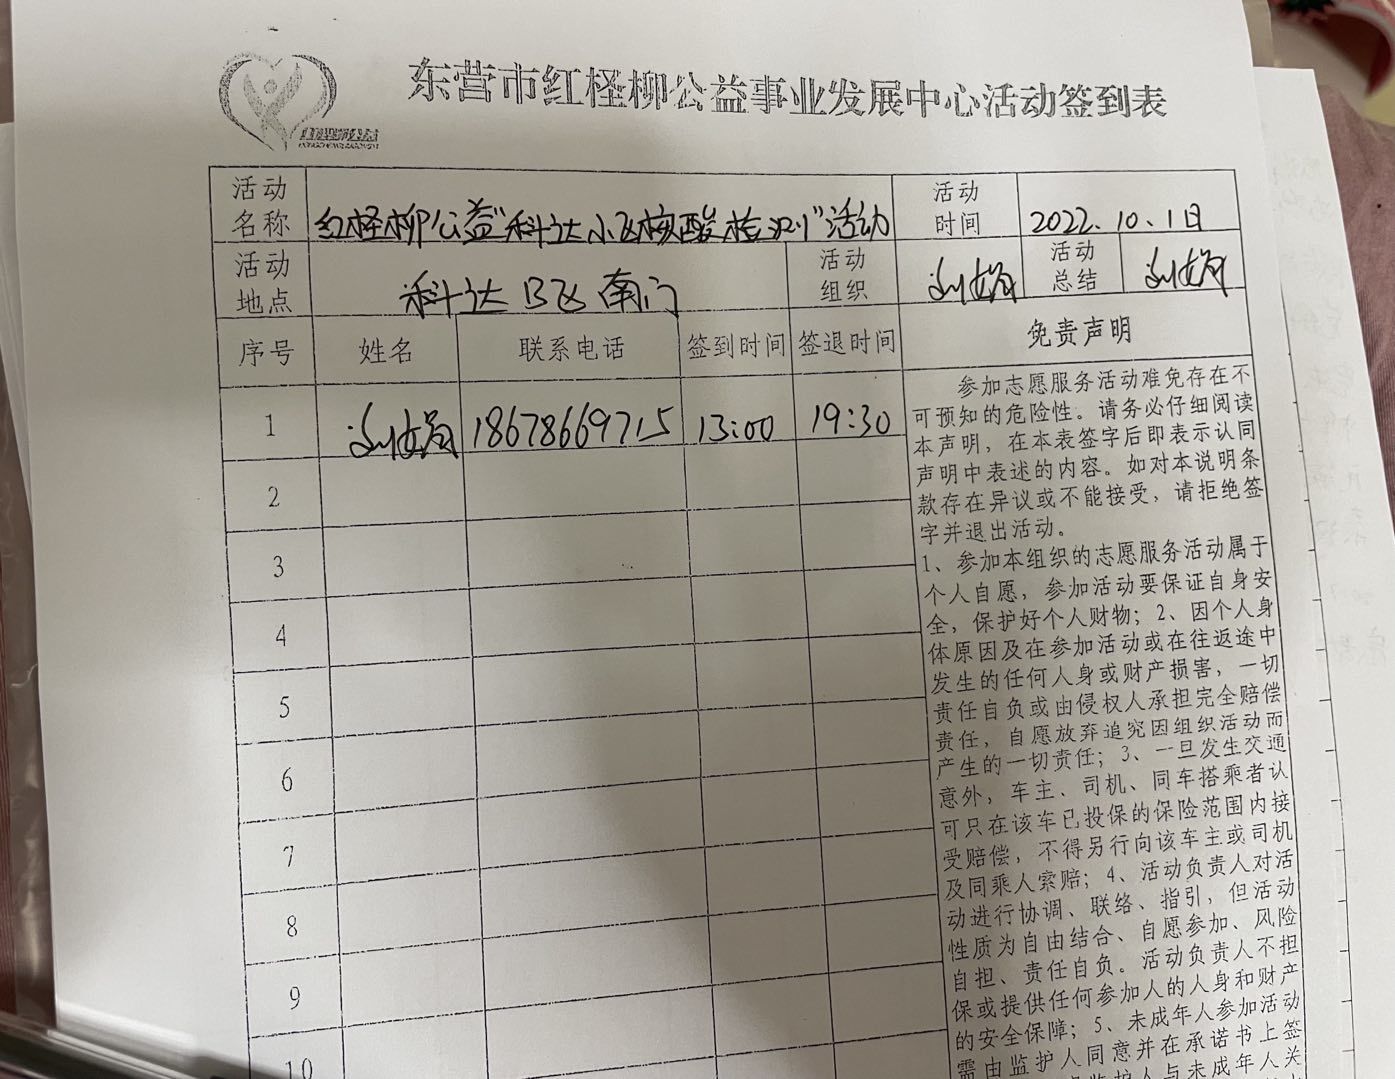 东营市红柽柳公益事业发展中心活动签到表
活动名称 红柽柳公益"科达小飞核酸检测"活动 活动时间 2022.10.1日
活动地点 科达 飞 南门 活动组织 刘娟 活动总结 刘娟
序号 姓名 联系电话 签到时间 签退时间 免责声明
1 刘娟 18678669715 13:00 19:30
2
3
4
5
6
7
8
9
10
参加志愿服务活动难免存在不
可预知的危险性。请务必仔细阅读
本声明，在本表签字后即表示认同
声明中表述的内容。如对本说明条
款存在异议或不能接受，请拒绝签
字并退出活动。
1、参加本组织的志愿服务活动属于
个人自愿，参加活动要保证自身安
全，保护好个人财物；2、因个人身
体原因及在参加活动或在往返途中
发生的任何人身或财产损害，一切
责任自负或由侵权人承担完全赔偿
责任，自愿放弃追究因组织活动而
产生的一切责任；3、一旦发生交通
意外，车主、司机、同车搭乘者认
可只在该车已投保的保险范围内接
受赔偿，不得另行向该车主或司机
及同乘人索赔；4、活动负责人对活
动进行协调、联络、指引，但活动
性质为自由结合、自愿参加、风险
自担、责任自负。活动负责人不担
保或提供任何参加人的人身和财产
的安全保障；5、未成年人参加活动
需由监护人同意并在承诺书上签
监护人与未成年人关